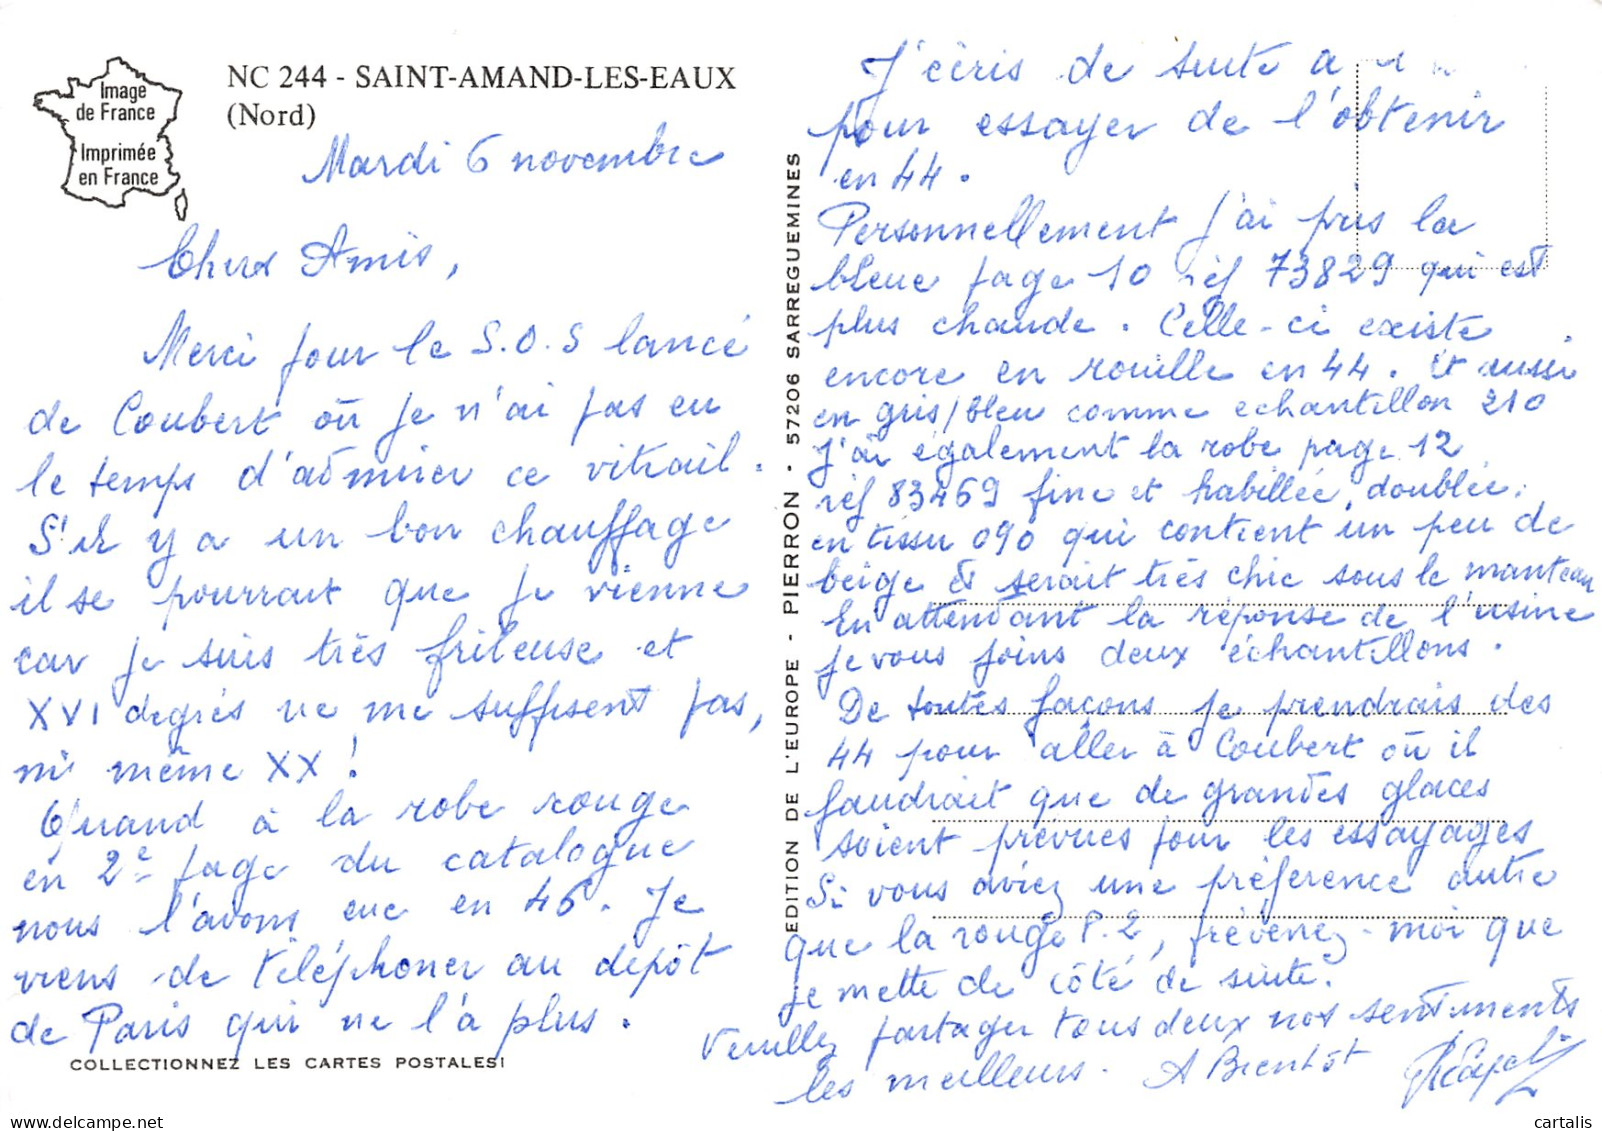 Image
de France
Imprimée
en France
NC 244 - SAINT-AMAND-LES-EAUX
(Nord)
Mardi 6 novembre
Chers Amis,
Merci pour le S.O.S lancé
de Coubert où je n'ai pas eu
le temps d'admirer ce vitrail.
S'il y a un bon chauffage
il se pourrait que je vienne
car je suis très frileuse et
XVI degrés ne me suffisent pas,
ni même XX !
Quand à la robe rouge
en 2e page du catalogue
nous l'avons eue en 46. Je
viens de téléphoner au dépôt
de Paris qui ne l'a plus.
COLLECTIONNEZ LES CARTES POSTALES!
EDITION DE L'EUROPE - PIERRON - 57206 SARREGUEMINES
J'écris de suite a
pour essayer de l'obtenir
en 44.
Personnellement j'ai pris la
bleue page 10 réf 73829 qui est
plus chaude. Celle-ci existe
encore en rouille en 44. Et aussi
en gris/bleu comme echantillon 210
J'ai également la robe page 12
réf 83469 fine et habillée, doublée.
en tissu 090 qui contient un peu de
beige & serait très chic sous le manteau
En attendant la réponse de l'usine
je vous joins deux échantillons.
De toutes façons je prendrais des
44 pour aller à Coubert où il
faudrait que de grandes glaces
soient prévues pour les essayages
Si vous aviez une préférence autre
que la rouge P.2, prévenez-moi que
je mette de côté de suite.
Veuillez partager tous deux nos sentiments
les meilleurs. A Bientôt
cartalis.net